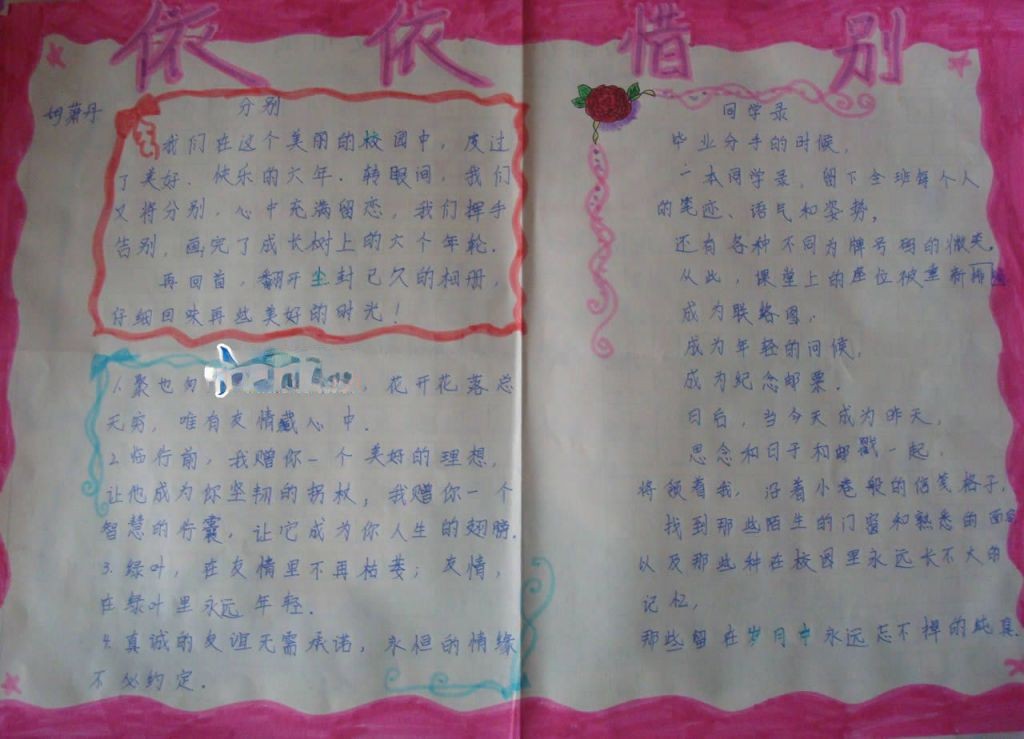 依依惜别
萧丹
分别
我们在这个美丽的校园中，度过
了美好、快乐的六年．转眼间，我们
又将分别，心中充满留恋，我们挥手
告别，画完了成长树上的六个年轮．
再回首，翻开尘封已久的相册，
仔细回味再些美好的时光！
1.聚也匆，花开花落总
无穷，唯有友情藏心中．
2.临行前，我赠你一个美好的理想，
让他成为你坚韧的拐杖；我赠你一个
智慧的行囊，让它成为你人生的翅膀．
3.绿叶，在友情里不再枯萎；友情，
在绿叶里永远年轻．
4.真诚的友谊无需承诺，永恒的情缘
不必约定．
同学录
毕业分手的时候，
一本同学录，留下全班每个人
的笔迹、语气和姿势。
还有各种不同为牌号码的微笑．
从此，课堂上的座位被重新排
成为联络图，
成为年轻的问候，
成为纪念邮票．
日后，当今天成为昨天，
思念和日子和邮戳一起，
将领着我，沿着小巷般的信笺格子，
找到那些陌生的门窗和熟悉的面
以及那些种在校园里永远长不大的
记忆，
那些留在岁月中永远忘不掉的纯真．